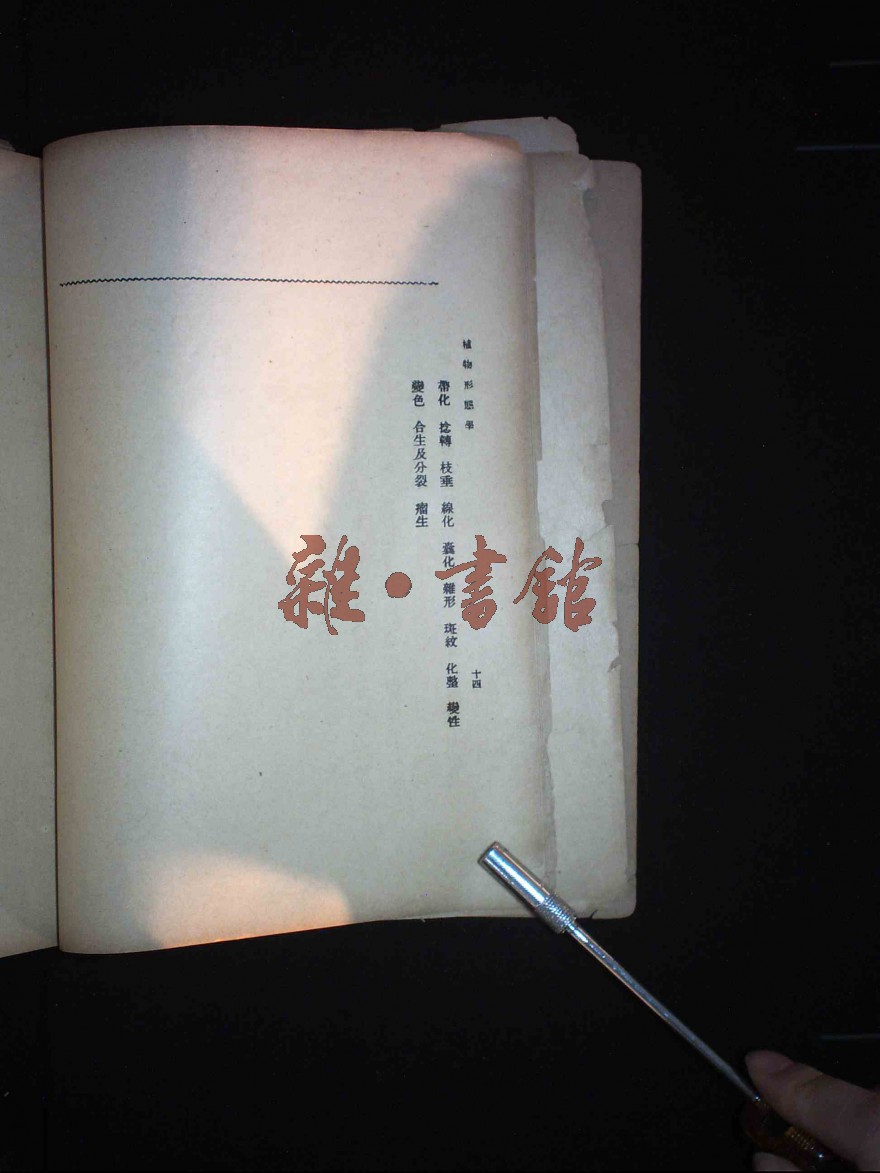 植物形態學
十四
帶化　捻轉　枝垂　線化　囊化　雜形　斑紋　化整　變性
變色　合生及分裂　瘤生
雜・書館